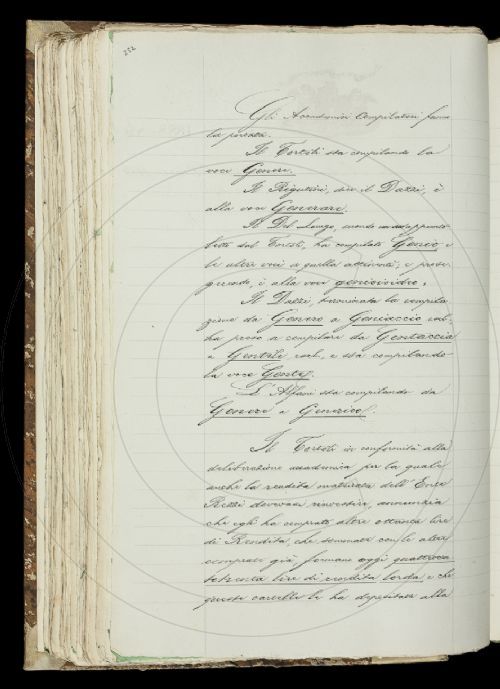 252
Gli Accademici Compilatori fanno
la presenza.
Il Tortoli sta compilando la
voce Genere.
Il Rigutini, dice il Dazzi, è
alla voce Generare.
Il Del Lungo, avendo
dal Tortoli, ha compilato Genio e
le altre voci a quella attinenti, e prose-
guendo, è alla voce
Il Dazzi, terminata la compila-
zione da Genero a Geniaccio
ha preso a compilare da Gentaccia
a Gentile e sta compilando
la voce Gente.
L'Alfani sta compilando da
Genere a Generico.
Il Tortoli in conformità alla
deliberazione accademica per la quale
anche la rendita maturata dell'Ente
Rezzi dovevasi rinvestire, annunzia
che egli ha comprato altre ottanta lire
di Rendita, che sommate con le altre
comprate già, formano oggi quattrocen-
lire di rendita lorda, e che
queste cartelle le ha depositate alla